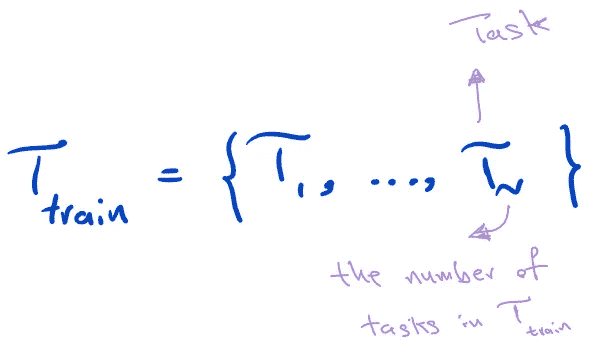 Task
T_train = {T_1, ..., T_N}
the number of
tasks in T_train